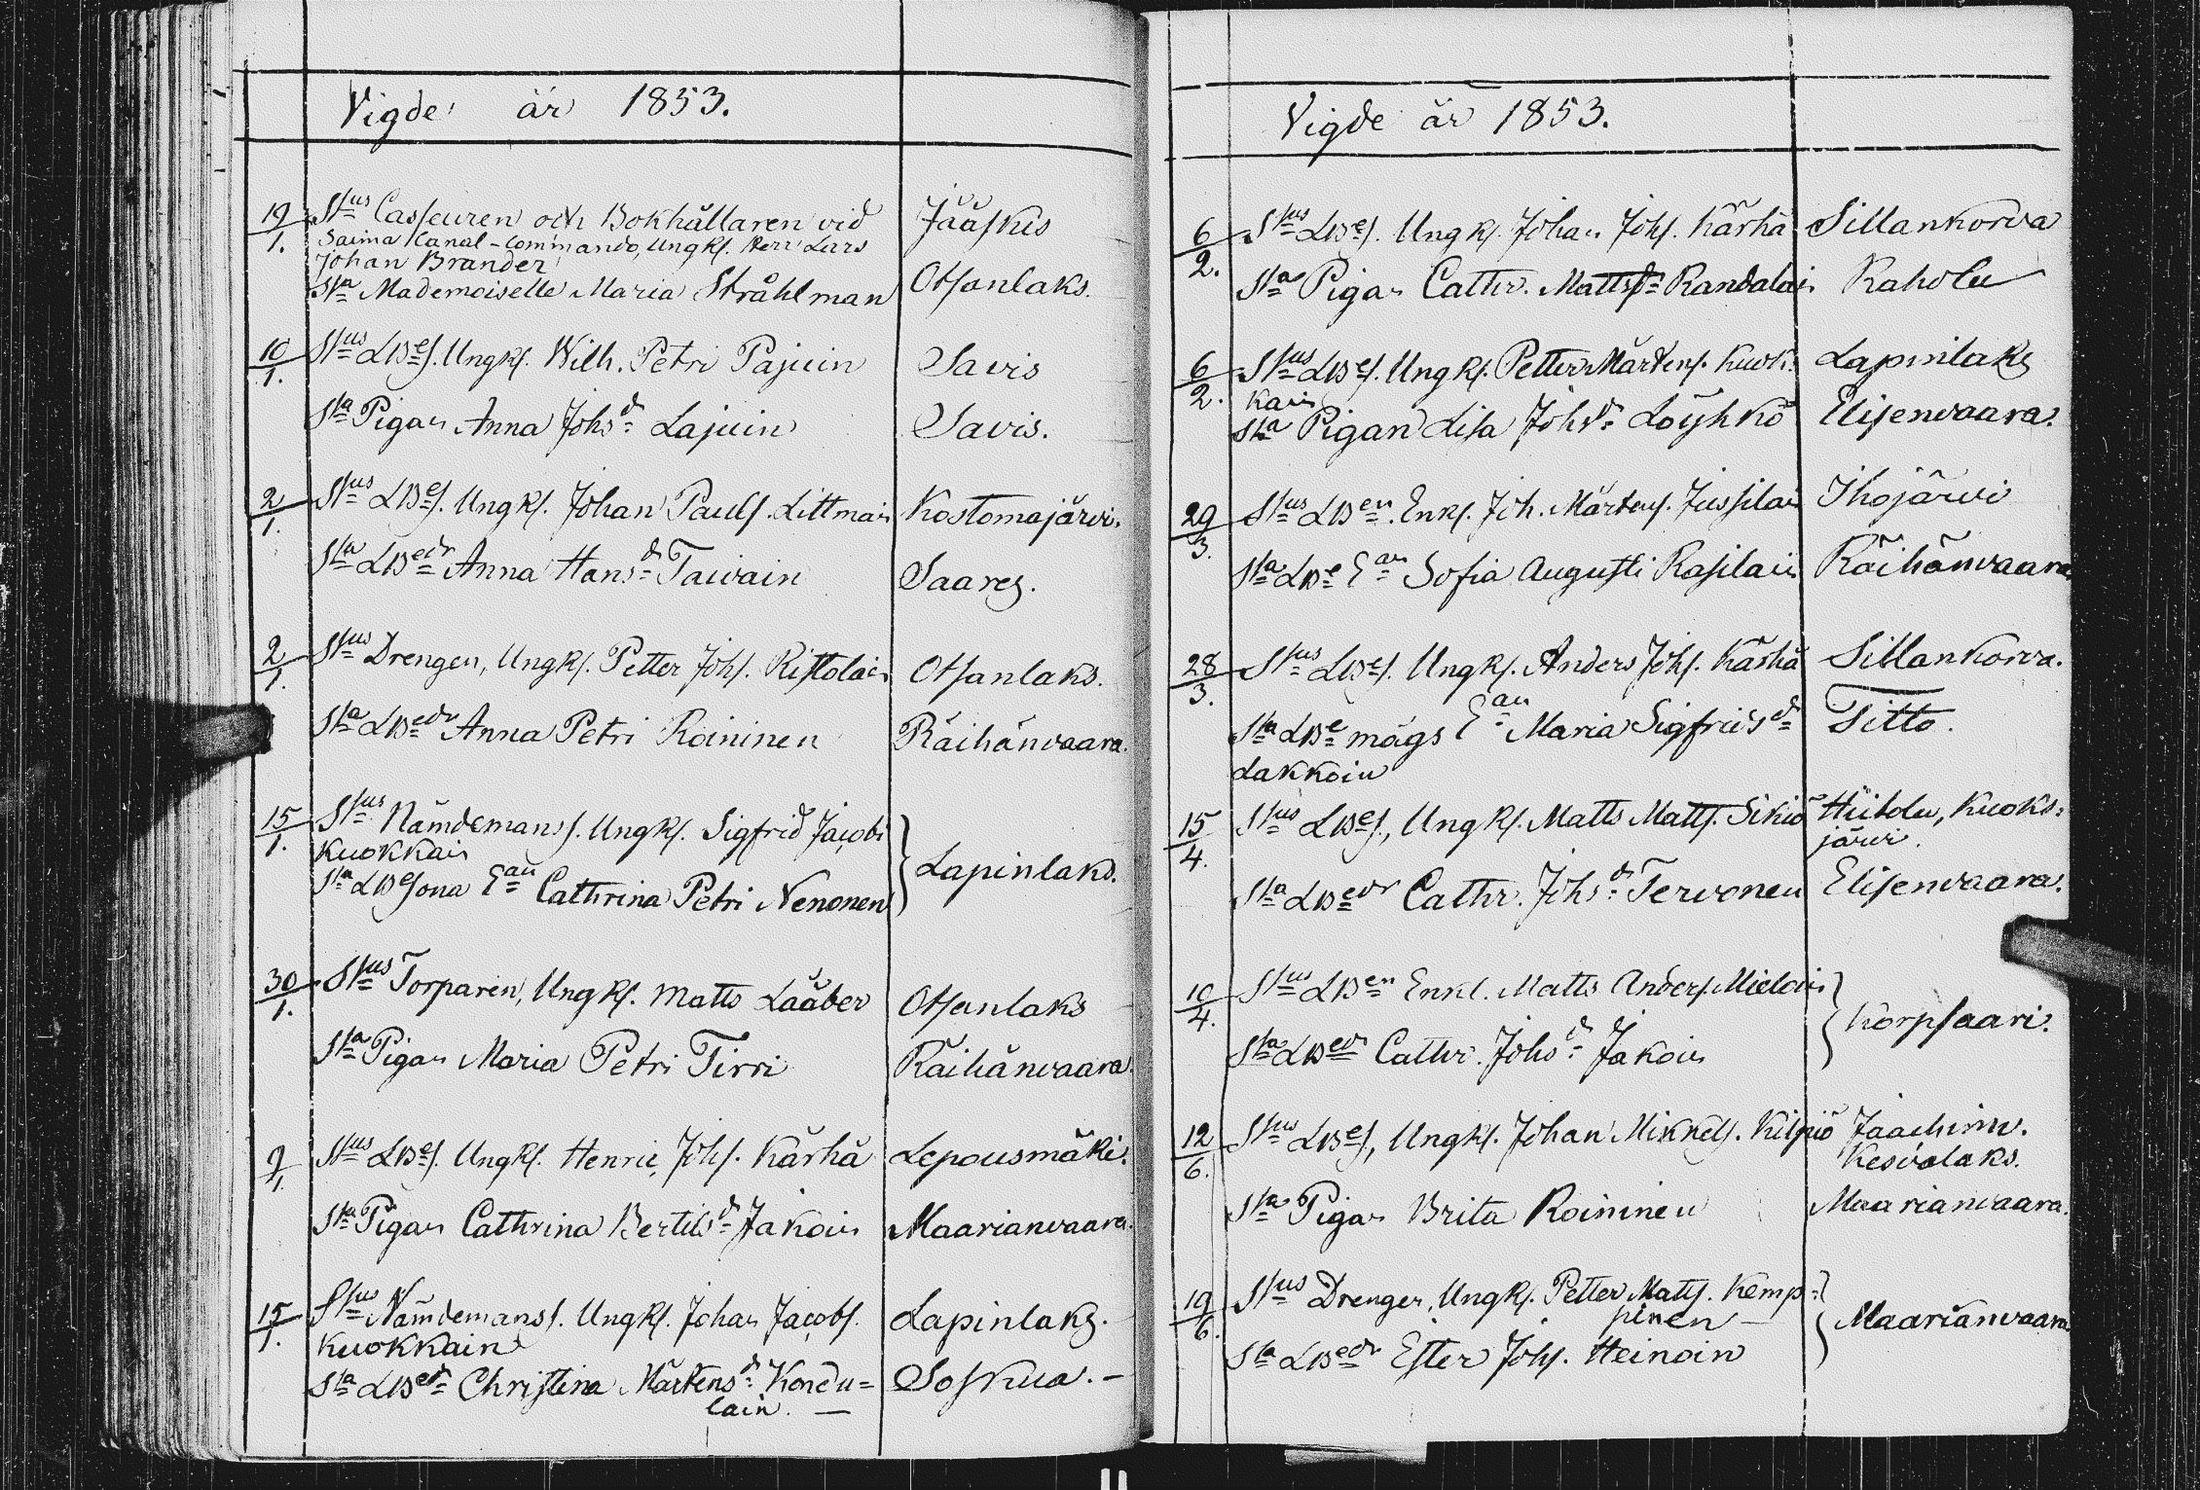 Vigde år 1853.
19/1. Sponsus Casseuren och Bokhållaren vid Jääskis
Saima Kanal-Commando, Ungk. Herr Lars
Johan Brander
Sta Mademoiselle Maria Stråhlman Otsanlaks.
10/1. Sus LBes. Ungk. Wilh. Petri Pajuin Savis
Sta Pigan Anna Johsdr Lajuin Savis.
2/1. Sus LBes. Ungk. Johan Pauls. Littmain Kostomajärvi.
Sta LBedr Anna Hansdr Tavain Saares.
2/1. Sus Drengen, Ungk. Petter Johs. Ristolain Otsanlaks.
Sta LBedr Anna Petri Roininen Räihänvaara.
15/1. Sus Nämdemans s. Ungk. Sigfrid Jacobs
Kuokkain
Lapinlaks.
Sta LBesona Ean Cathrina Petri Nenonen
30/1. Sus Torparen, Ungk. Matts Lääber Otsanlaks
Sta Pigan Maria Petri Tirri Räihänvaara.
9/1. Sus LBes. Ungk. Henric Johs. Kärhä Lepousmäki.
Sta Pigan Cathrina Bertilsdr Jakoin Maarianvaara.
15/1. Sus Nämdemans s. Ungk. Johan Jacobs. Lapinlaks.
Kuokkain
Sta LBedr Christina Mårtensdr Kondu= Soskua. —
lain. —
Vigde år 1853.
6/2. Sus LBes. Ungk. Johan Johs. Kärhä Sillankorva
Sta Pigan Cathr. Mattsdr Randalain Raholu
6/2. Sus LBes. Ungk. Petter Mårtens. Kuok= Lapinlaks
kain
Sta Pigan Lisa Johsdr Löyhkö Elisenvaara.
29/3. Sus LBen. Enkl. Joh. Mårtens. Jussilain Ihojärvi
Sta LBe Ean Sofia Augusti Rasilain Räihänvaara
28/3. Sus LBes. Ungk. Anders Johs. Kärhä Sillankorva.
Sta LBe mågs Ean Maria Sigfridsdr Ditto.
Lakkoin
15/4. Sus LBes, Ungk. Matts Matts. Sikiö Hiitolu, Kuoks=
järvi.
Sta LBedr Cathr. Johsdr Tervonen Elisenvaara.
10/4. Sus LBen Enkl. Matts Anders. Mieloin
Korpsaari.
Sta LBedr Cathr. Johsdr Jakoin
12/6. Sus LBes, Ungk. Johan Mikkels. Kilpiö Jaachim.
Kesvalaks.
Sta Pigan Brita Roininen Maarianvaara.
19/6. Sus Drengen, Ungk. Petter Matts. Kemp=
pinen —
Maarianvaara
Sta LBedr Ester Johs. Heinoin